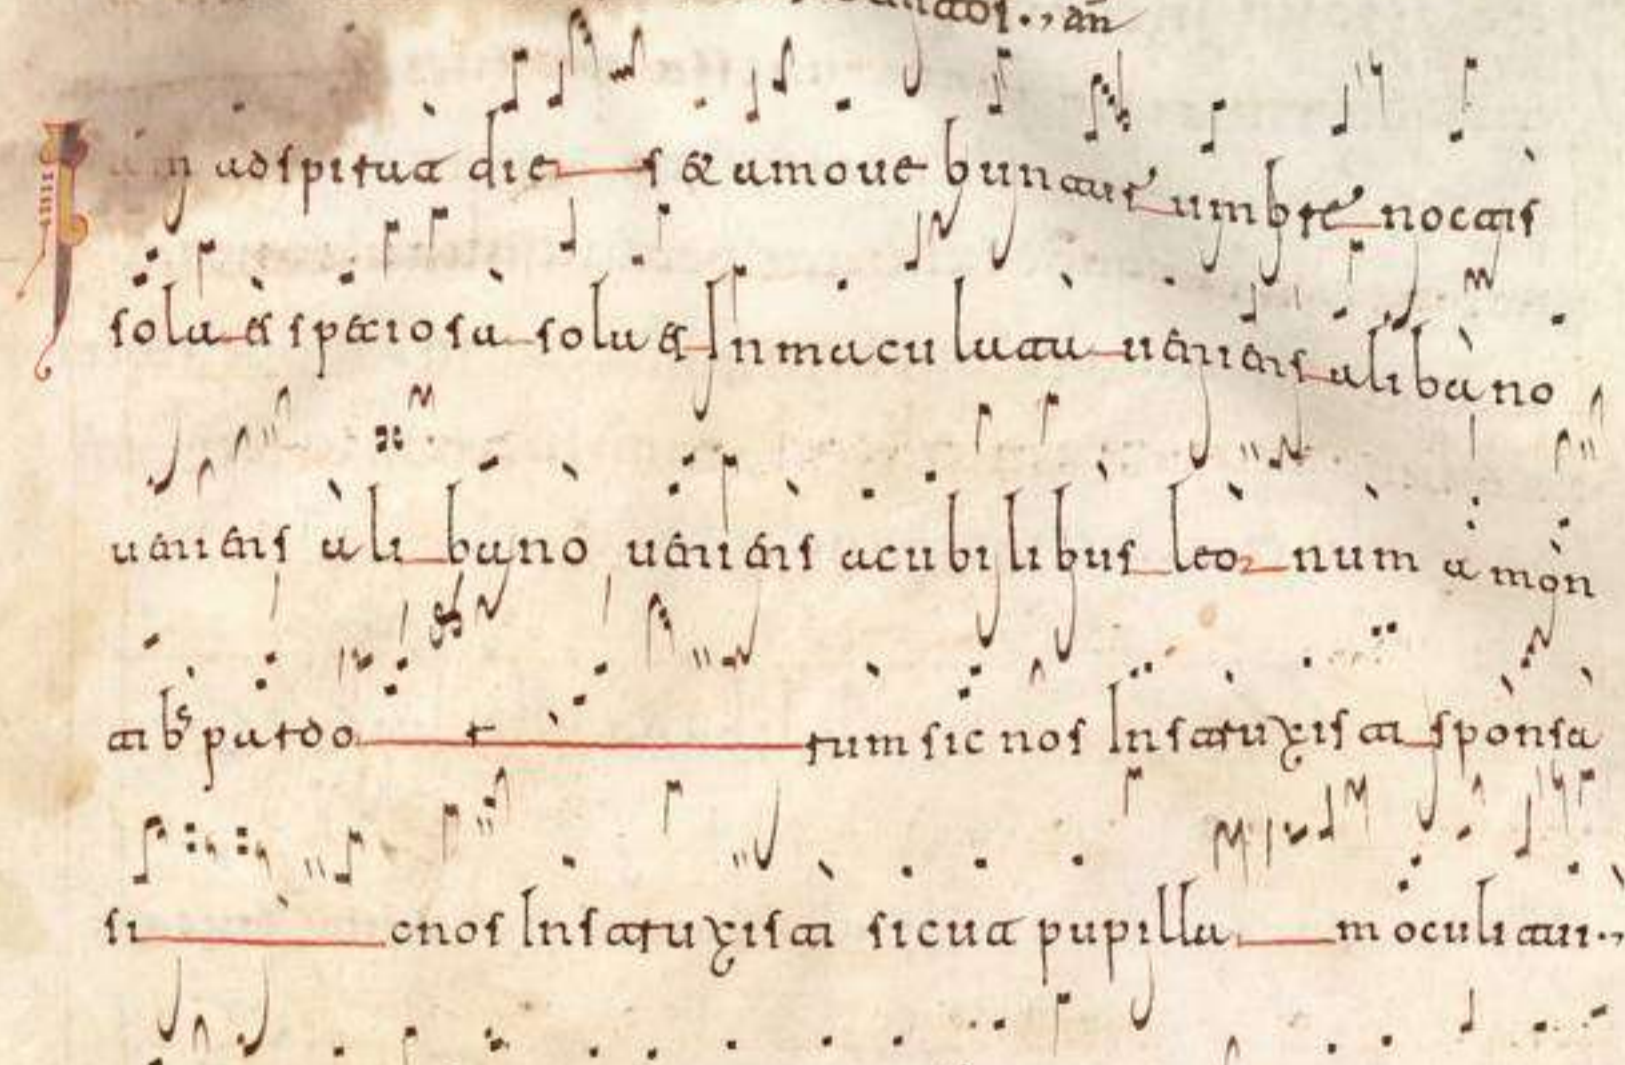 añ
Iam adspirat dies & amovebuntur umbre noctis
sola es speciosa sola es Inmaculata veniens a libano
veniens a libano veniens a cubilibus leonum a mon
tibs pardo r rum sic nos Instruxisti sponsa
si cnos Instruxisti sicut pupilla m oculi tui.,